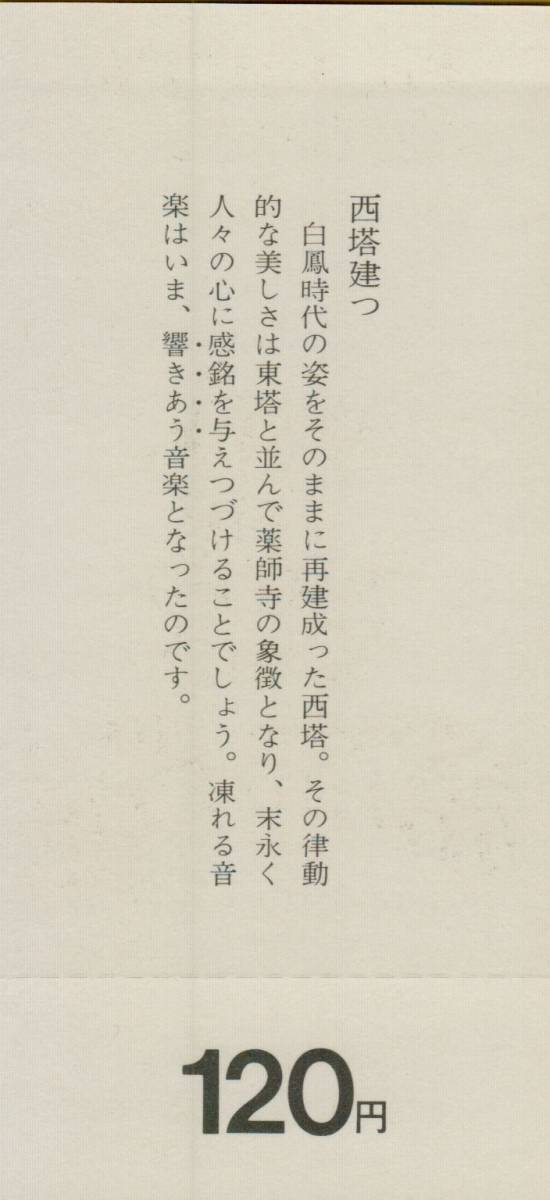 西塔建つ
白鳳時代の姿をそのままに再建成った西塔。その律動
的な美しさは東塔と並んで薬師寺の象徴となり、末永く
人々の心に感銘を与えつづけることでしょう。凍れる音
楽はいま、響きあう音楽となったのです。
120円